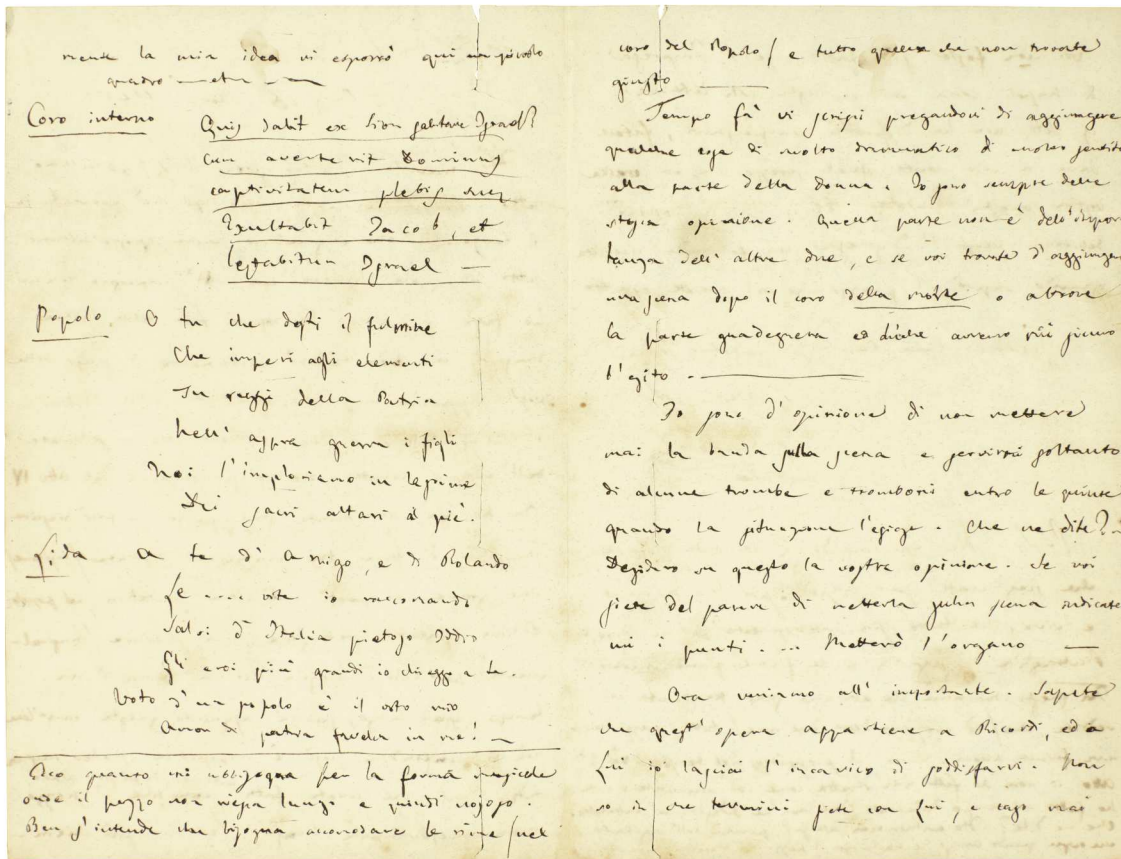 mente la mia idea vi esporrò qui un piccolo
quadro
Coro interno
Quis dabit ex Sion salutare Israel?
cum averterit Dominus
captivitatem plebis suæ
Exultabit Jacob, et
letabitur Israel —
Popolo O tu che desti il fulmine
Che imperi agli elementi
Tu reggi della Patria
Nell' aspra guerra i figli
Noi l'imploriamo in lagrime
Dei sacri altari a piè.
Lida A te d'Arrigo, e di Rolando
Le vite io raccomando
Salvi d'Italia pietoso Iddio
Gli eroi più grandi io chieggo a te.
Voto d'un popolo è il voto mio
Amor di patria favella in me! —
Ecco quanto mi abbisogna per la forma musicale
onde il pezzo non riesca lungo e quindi nojoso.
Ben s'intende che bisogna accomodare le rime (nel
coro del Popolo) e tutto quello che non trovate
giusto
Tempo fà vi scrissi pregandovi di aggiungere
qualche cosa di molto drammatico di molto sentito
alla parte della donna. Io sono sempre della
stessa opinione. Quella parte non è dell'impor
tanza dell' altre due, e se voi trovate d'aggiungere
una scena dopo il coro della morte o altrove
la parte guadagnera ed anche avremo più sicuro
l'esito.
Io sono d'opinione di non mettere
mai la banda sulla scena e servirsi soltanto
di alcune trombe e tromboni entro le quinte
quando la situazione l'esigge. Che ne dite?..
Desidero su questo la vostra opinione. Se voi
siete del parere di metterla sulla scena indicate
mi i punti. ... Metterò l'organo —
Ora veniamo all' importante. Sapete
che quest' opera appartiene a Ricordi, ed a
Lui io lasciai l'incarico di soddisfarvi. Non
so in che termini siete con Lui, e caso mai